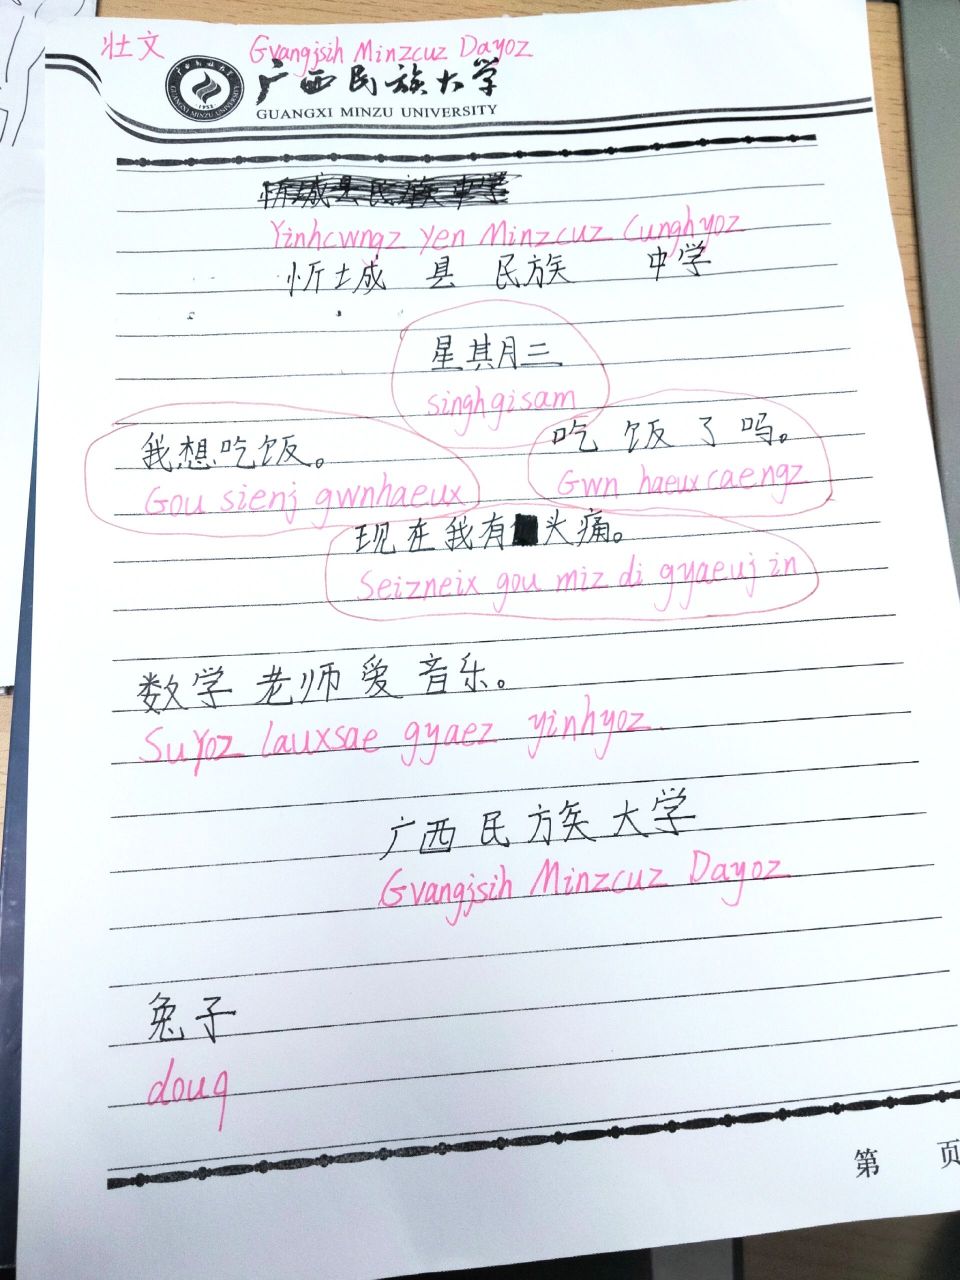 壮文 Gvangjsih Minzcuz Dayoz
广西民族大学
GUANGXI MINZU UNIVERSITY
1952
忻城县民族中学
Yinhcwngz Yen Minzcuz Cunghyoz
忻城 县 民族 中学
星其月三
singhgisam
我想吃饭。
Gou sienj gwnhaeux
吃饭了吗。
Gwn haeux caengz
现在我有头痛。
Seizneix gou miz di gyaeuj in
数学老师爱音乐。
Suyoz lauxsae gyaez yinhyoz
广西民族大学
Gvangjsih Minzcuz Dayoz
兔子
douq
第 页